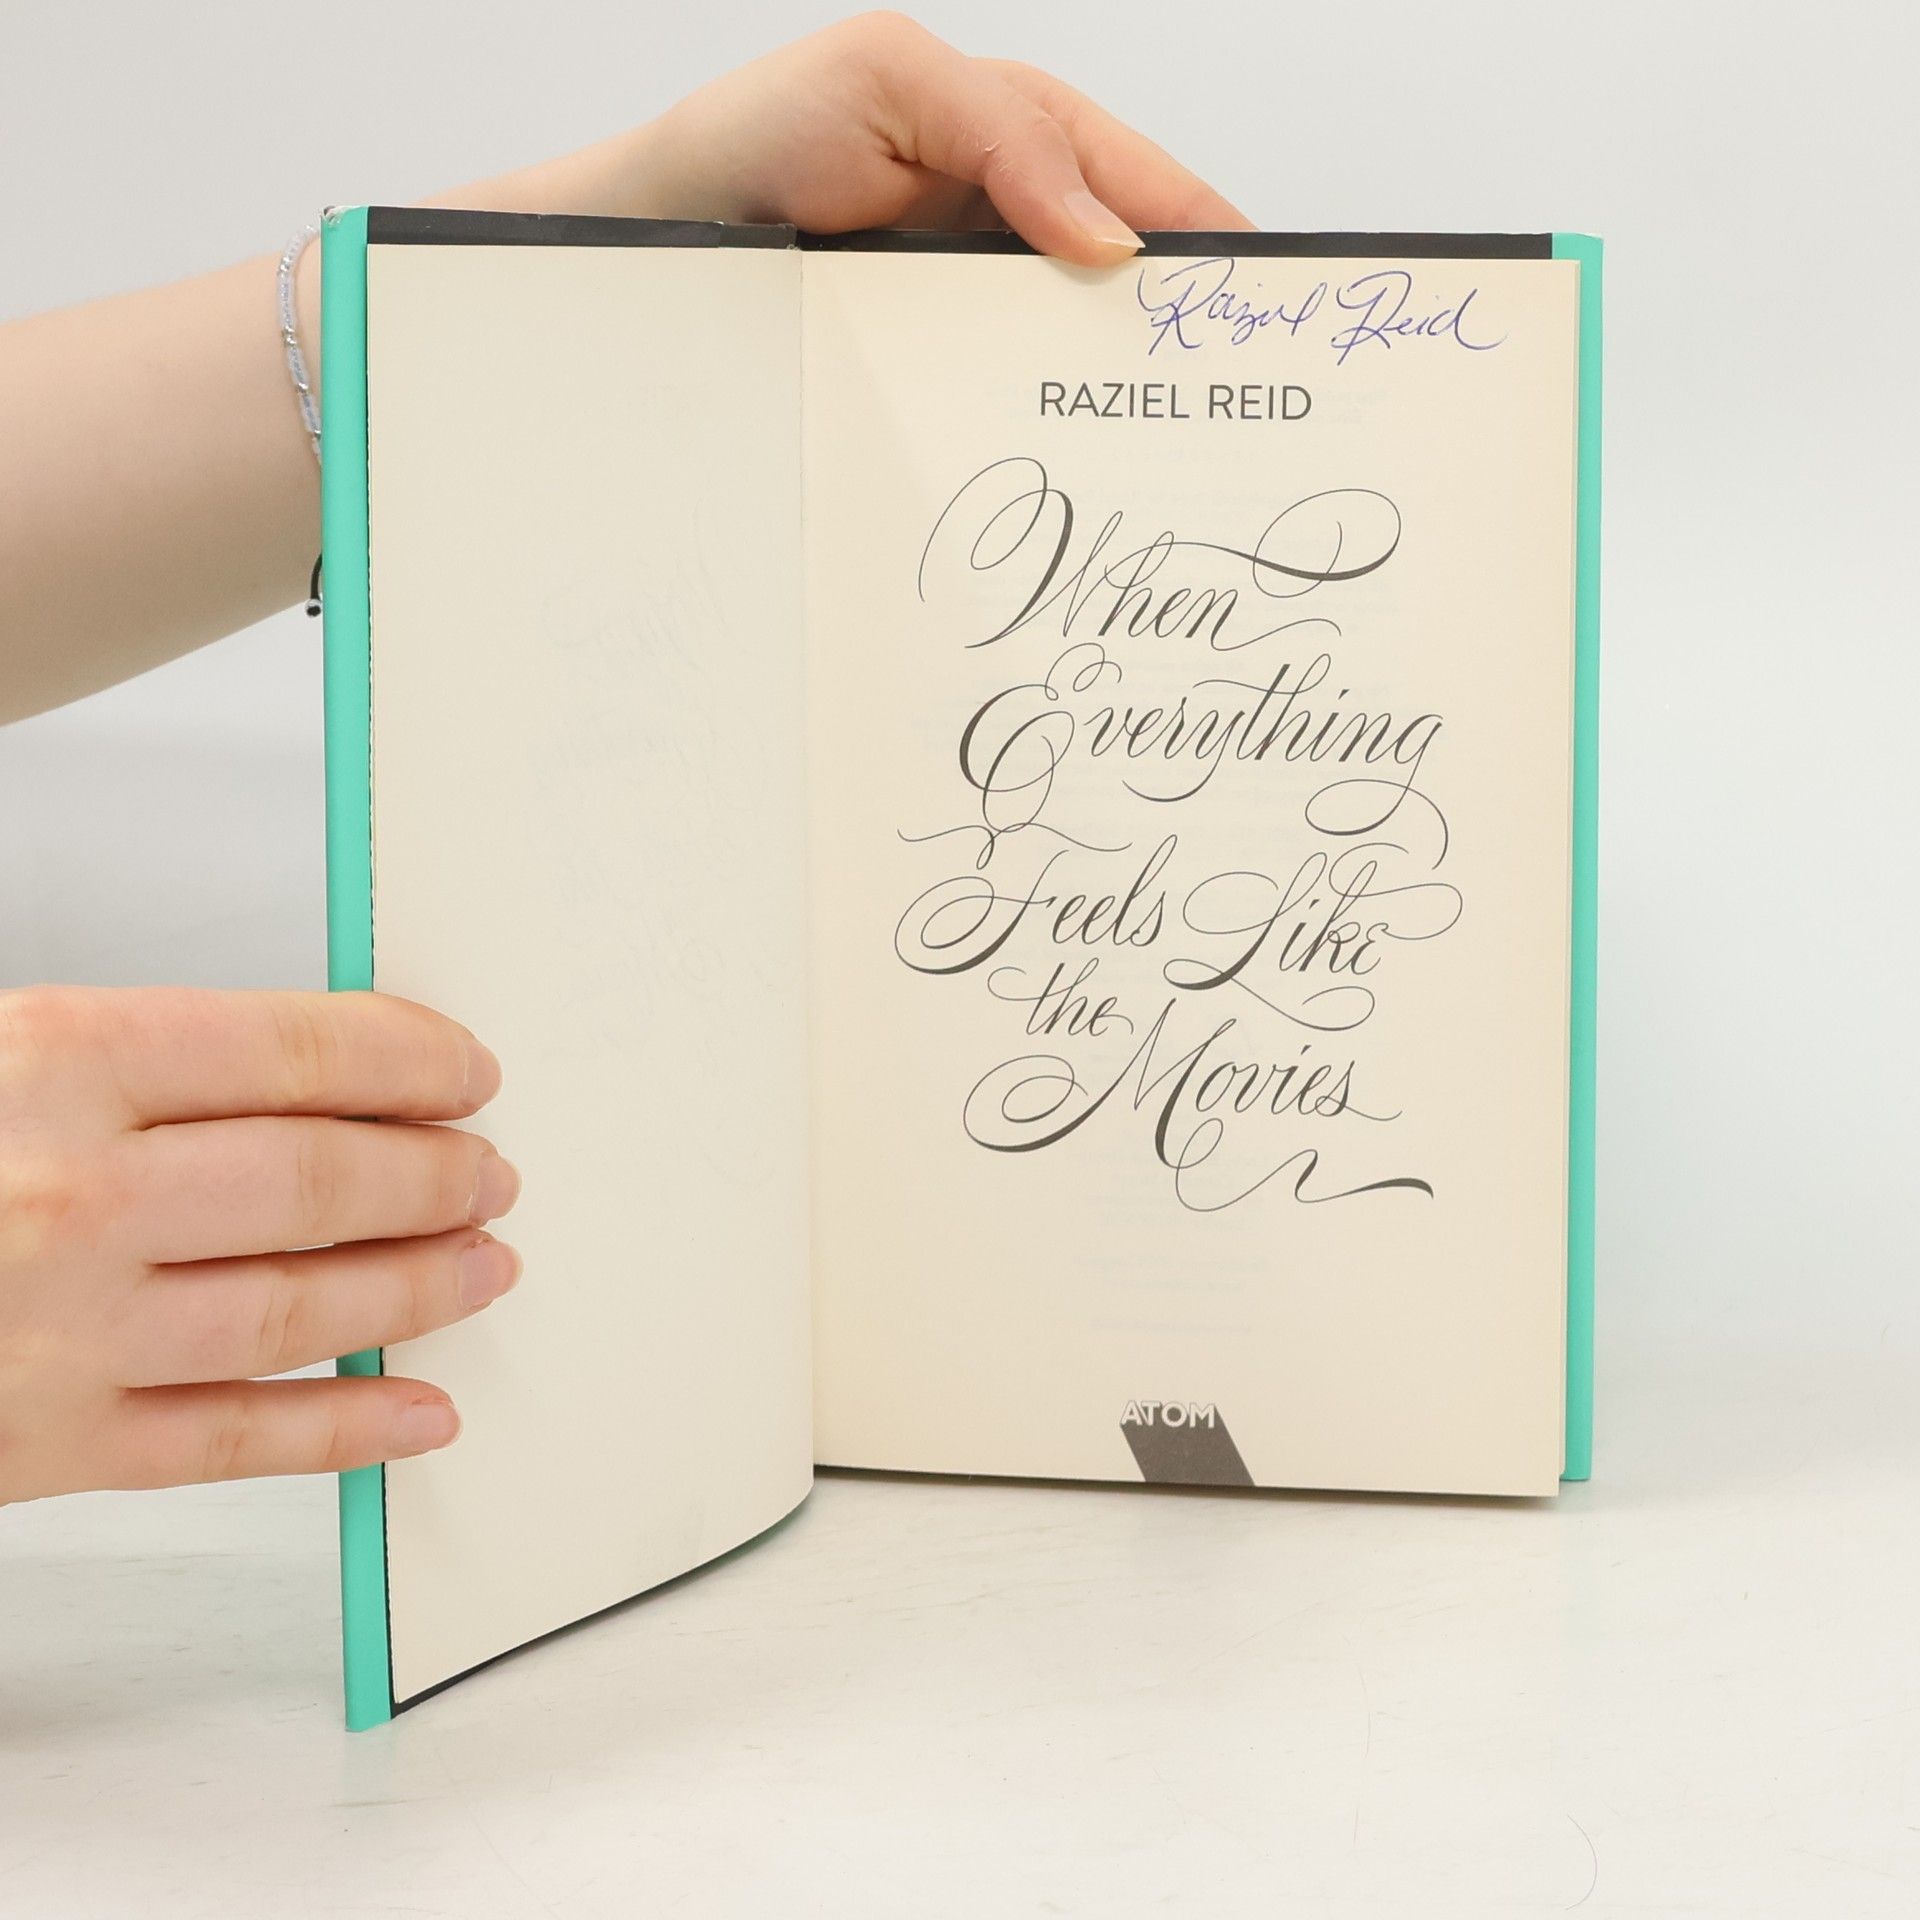 Raziel Reid
RAZIEL REID
When
Everything
Feels Like
the
Movies
ATOM